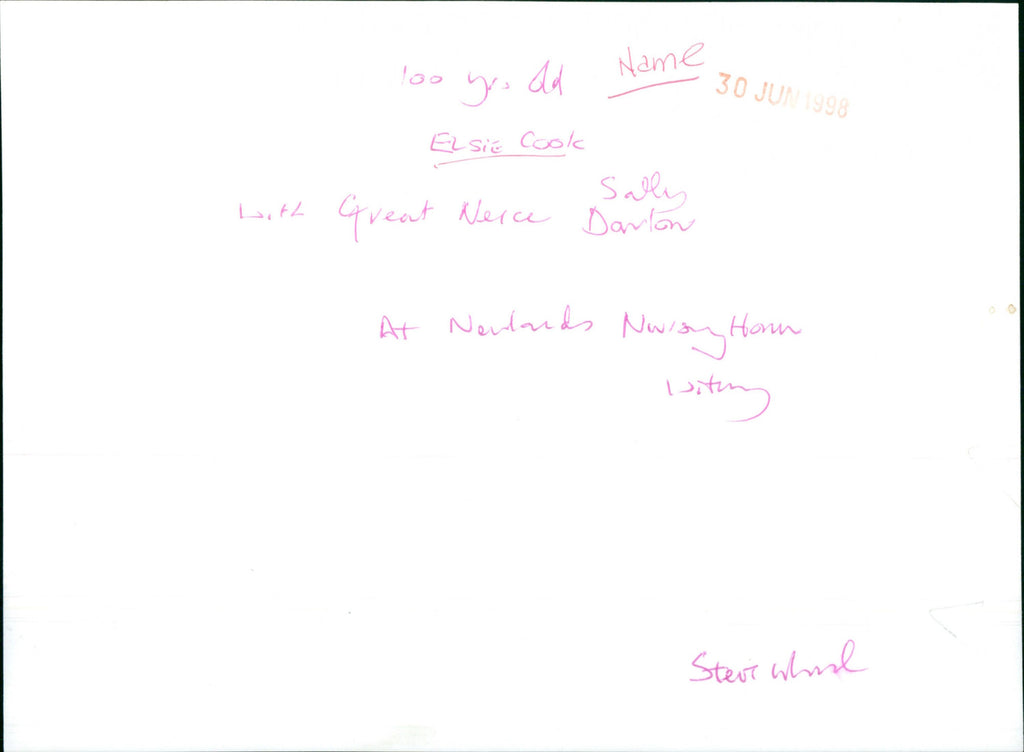 100 yrs. Old Name
30 JUN 1998
ELSIE Cook
with Great Neice Sally
Darton
At Newlands Nursing Home
Witney
Steve